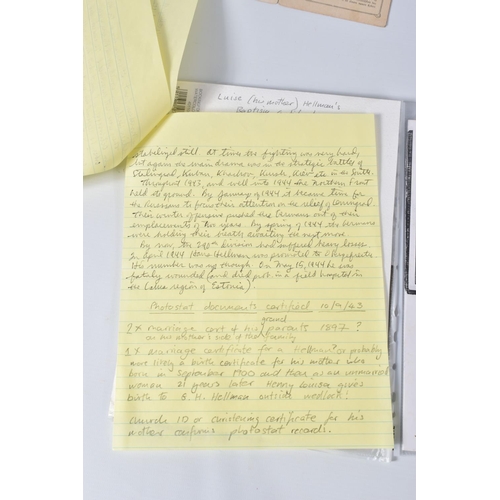 Luise (his mother) Hellman's
stabilized still. At times the fighting was very hard,
but again the main drama was in the strategic battles of
Stalingrad, Kuban, Kharkov, Kursk, Kiev etc in the South.
Throughout 1943, and well into 1944 the Northern Front
held its ground. By January of 1944 it became time for
the Russians to focus their attention on the relief of Leningrad.
Their winter offensive pushed the Germans out of their
emplacements of two years. By spring of 1944 the Germans
were holding their breath awaiting the next move.
By now, the 290th division had suffered heavy losses.
In April 1944 Hellman was promoted to Obergefreiter.
His number was up though. On May 15, 1944 he was
fatally wounded (and died in a field hospital in
the region of Estonia).
Photostat documents certified 10/9/43
grand
2 x marriage cert of his parents 1897 ?
on his mother's side of the family
1 x marriage certificate for a Hellman? or probably
more likely a birth certificate for his mother who
born in September 1900 and then as an unmarried
woman 21 years later Henny Louise gives
birth to S. H. Hellman outside wedlock!
Church ID or christening certificate for his
mother confirms photostat records.